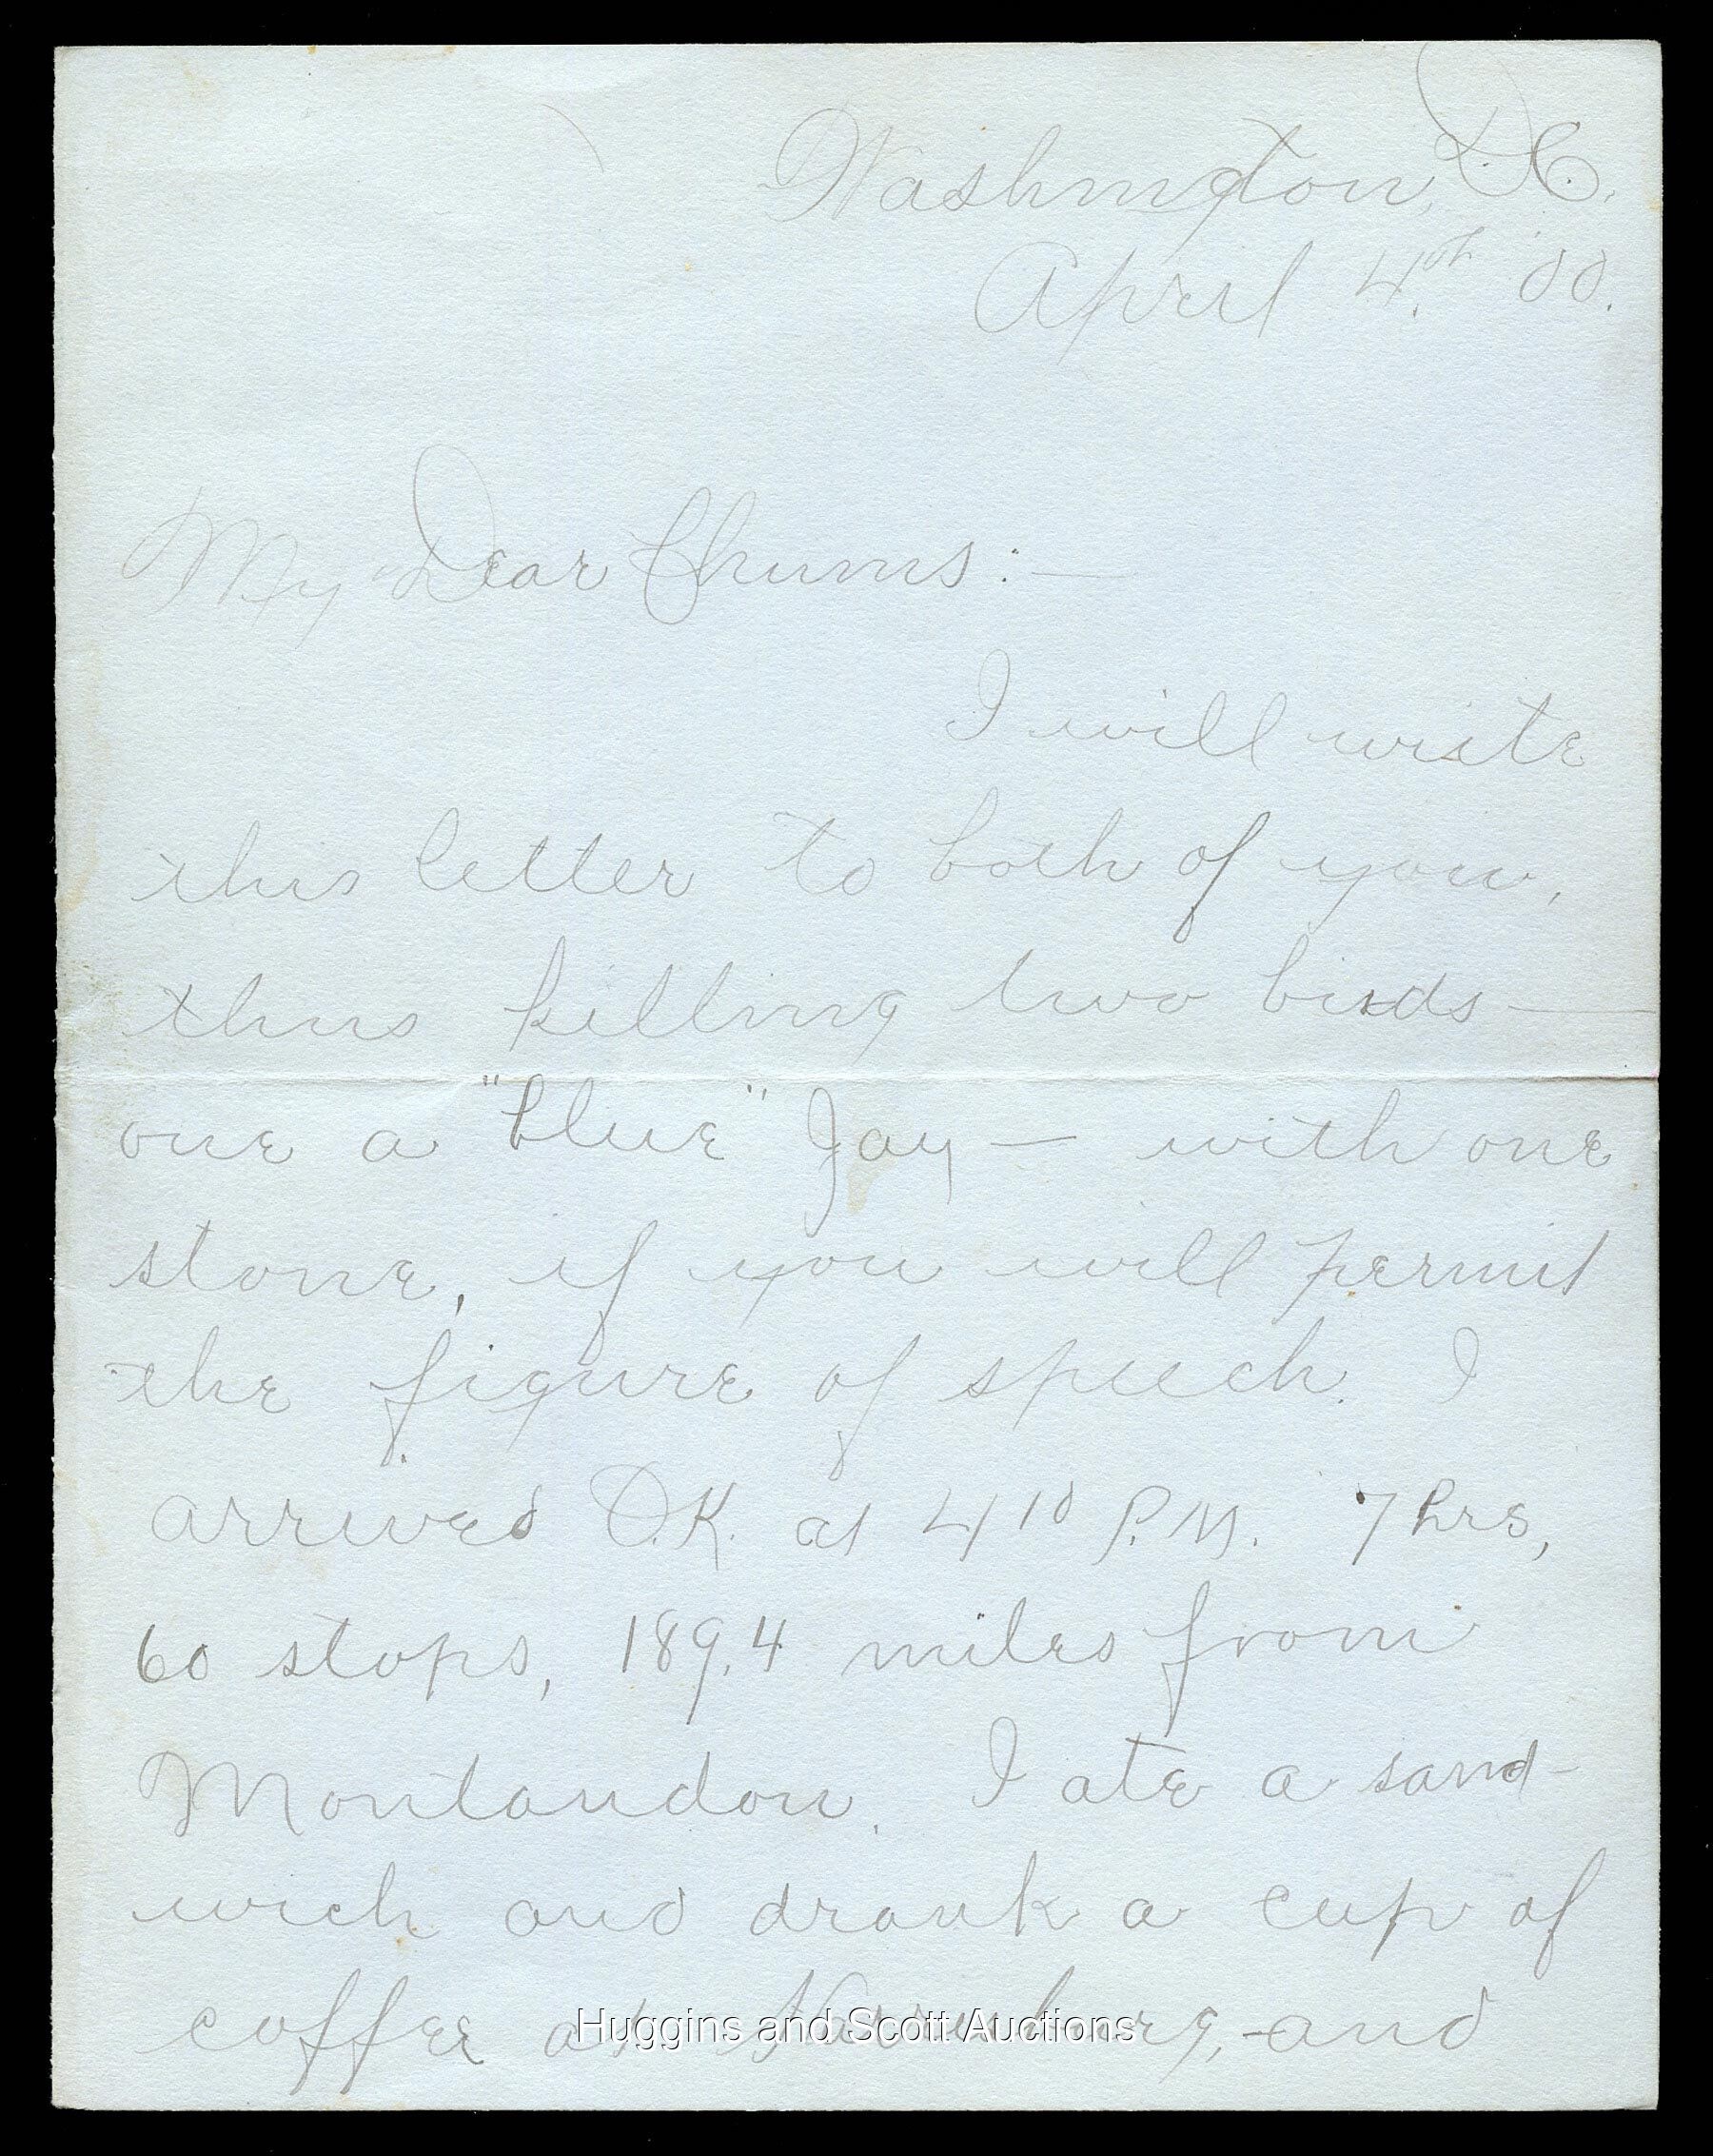 Washington, D.C.
April 4th '00.
My Dear Chums:—
I will write
this letter to both of you,
thus killing two birds—
one a "blue" Jay— with one
stone, if you will permit
the figure of speech. I
arrived O.K. at 4 10 P.M. 7 hrs,
60 stops, 189.4 miles from
Montandon. I ate a sand-
wich and drank a cup of
coffee at Harrisburg, and
Huggins and Scott Auctions